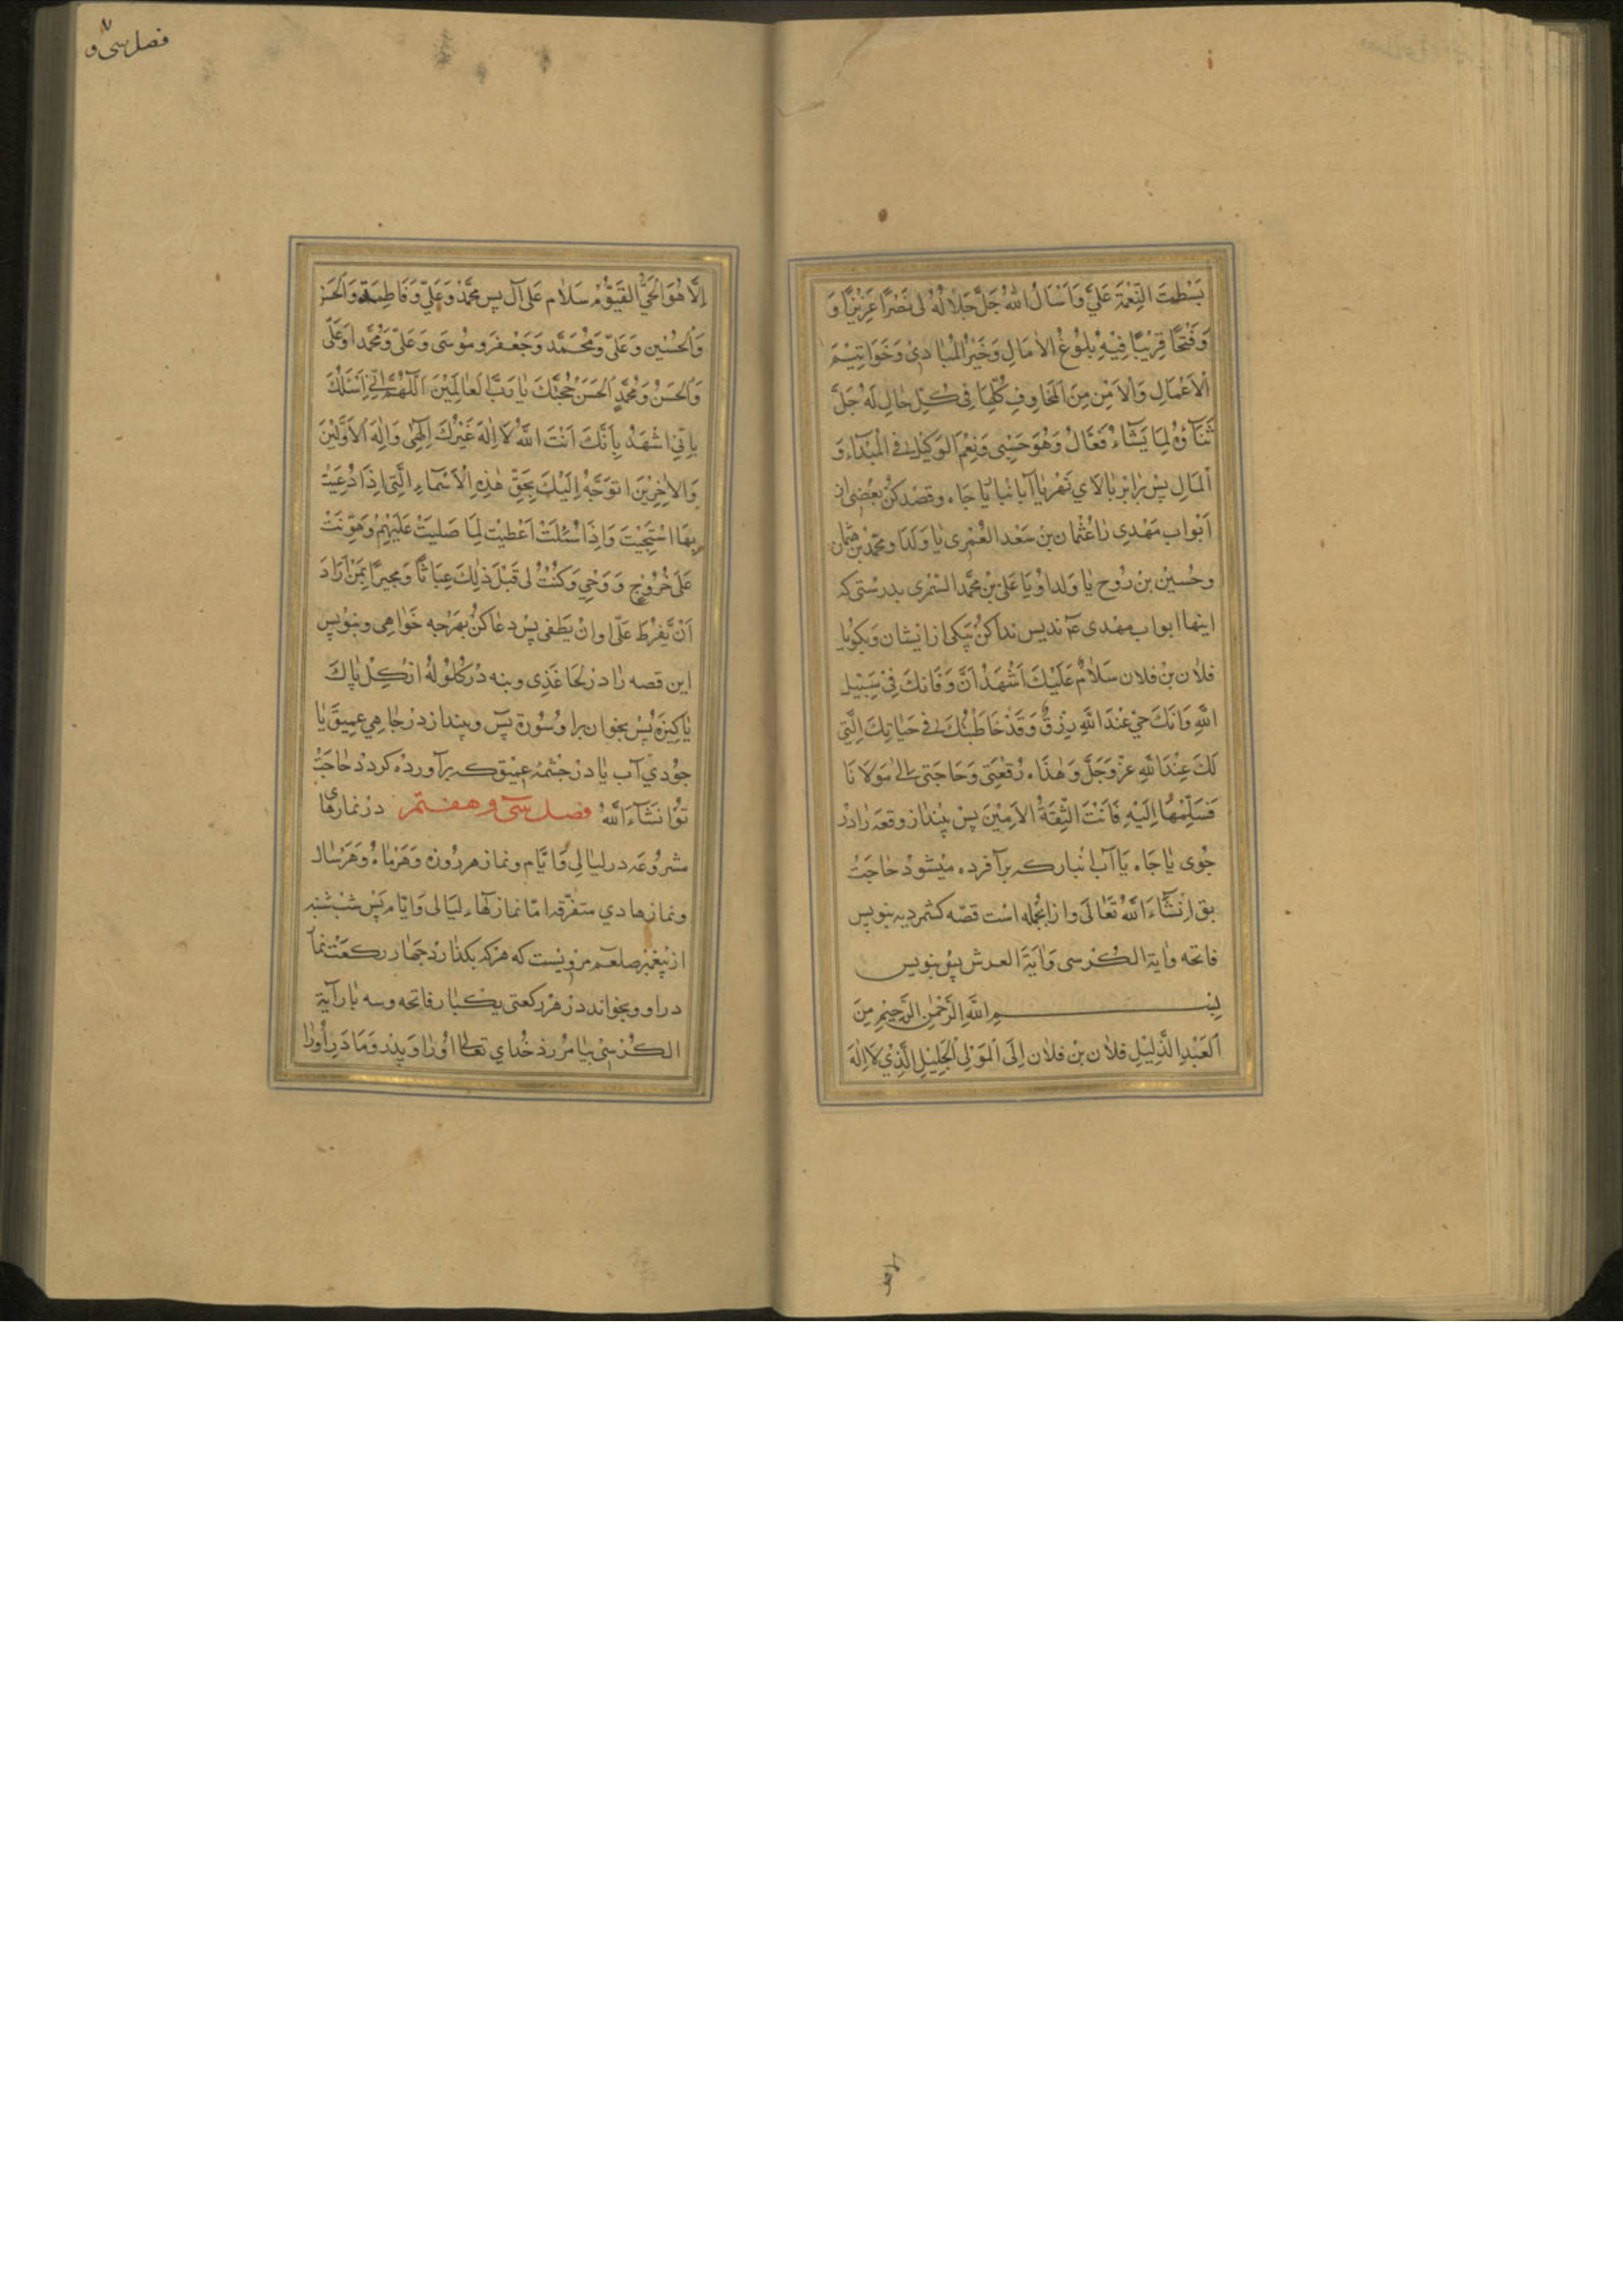 بَسْطِتَ النِّعْمَةِ عَلَيَّ وَاَسْاَلُ اللهَ جَلَّ جَلَالُهُ لى نَصْرًا عَزِيْزًا وَ
وَفَتْحًا قَرِيْبًا فِيْهِ بُلُوْغُ الاٰمَالِ وَخَيْرُ الْمَبَادِىْ وَخَوَاتِيْمَ
الْاَعْمَالِ وَالْاَمْنِ مِنَ الْمَخَاوِفِ كُلِّهَا فِى كُلِّ حَالٍ لَهُ جَلَّ
ثَنَآؤُهُ لِمَا يَشَآءُ فَعَّالٌ وَهُوَ حَسْبِى وَنِعْمَ الْوَكِيْلُ فى الْمَبْدَاءِ وَ
الْمَالِ پس برابر بالاي نهر يا آبانبار يا جاه وقصد كن بعضى از
اَبْوابِ مَهْدِى را عُثْمان بْن سَعْد العُمَرى يا ولد او محمّد بن عثمان
وحُسَيْن بْن رُوح يا ولد او يا عَلى بْن مُحمَّد السّمُرى بدرستى كه
اينها ابواب مهدى عۤ نديس ندا كن بيكى از ايشان وبكو يا
فلان بن فلان سَلامٌ عَلَيْكَ اَشْهَدُ اَنَّ وَفَاتَكَ فِىْ سَبِيْلِ
اللهِ وَاَنَّكَ حَىٌّ عِنْدَ اللهِ يرْزَقُ وَقَدْ خَاطَبْتُكَ فى حَيَاتِكَ الَّتِى
لَكَ عِنْدَ اللهِ عَزَّ وَجَلَّ وَهٰذَاه رُقْعَتِى وَحَاجَتى الىٰ مَوْلَانَا
فَسَلِّمْهَا اِلَيْهِ فَاَنْتَ الثِّقَةُ الْاَمِيْنَ پس بينداز وقعه را در
جوى يا جاه يا آب انبار كه برآفرده ميشود حاجت
بق اِنْشَآءَ اللهُ تَعَالَى وازانجمله است قصّه كشمرديه بنويس
فاتحه واٰية الكُرسى وَاٰيَةَ العرش پس بنويس
بِسْــــــمِ اللهِ الرَّحْمٰنِ الرَّحِيْمِ مِنَ
اَلْعَبْدِ الذَّلِيْلِ فلان بْن فلان اِلَى الْمَوْلَى الْجَلِيْلِ الَّذِىْ لَا اِلٰهَ
فصل سى و ٧
اِلَّا هُوَ الْحَىُّ الْقَيُّوْمُ سَلَام عَلى آل يس مُحَمَّدٍ وَعَلِىٍّ وَفَاطِمَةَ وَالْحَسَن
وَالْحُسَيْن وَعَلِىٍّ وَمُحَمَّد وَجَعْفَر ومُوسَى وَعَلِىّ وَمُحَمَّد اوَعَلَى
وَالْحَسَنُ وَمُحَمَّدِ الْحَسَنْ حُجَّتُكَ يَا رَبَّ الْعَالَمِيْنَ اَللّٰهُمَّ اِنِّى اَسْئَلُكَ
بِاَنِّى اشْهَدُ بِاَنَّكَ اَنْتَ اللهُ لَا اِلٰهَ غَيْرُكَ اِلٰهِى وَاِلٰهَ الْاَوَّلِيْنَ
وَالْاٰخِرِيْنَ اتَوَجَّهُ اِلَيْكَ بِحَقِّ هٰذِهِ الْاَسْمَاءِ الَّتِى اِذَا دُعِيْتَ
بِهَا اسْتَجَبْتَ وَاِذَا سُئِلْتَ اَعْطَيْتَ لِمَا صَلَيتَ عَلَيْهِمْ وَهَوَّنْتَ
عَلَى خُرُوْجِ وَوْحِى وَكُنْتُ لى قَبْلَ ذٰلِكَ غِيَاثًا وَمُجيرًا بِمَنْ اَرَادَ
اَنْ يَّفْرُطَ عَلَىّ اوانْ يَطْغى پس دعا كن بهرجه خواهى وبنويس
اين قصه را در كاغذى وبنه در كلوله از كِل پاك
پاكيزه پس بخوان برا و سُوْرة يسٓ وبينداز در جاهى عميق يا
جوُدي آب يا در جشمهٔ عميق كه برآورده كردد حاجت
تو انشآء الله فصل سى و هفتم در نمازهاى
مشروعه در ليالى وايّام ونماز هر روز وهرماه وهرسال
ونمازهادي متفرّقه امّا نمازهاء ليالى وايّام پس شب شنبه
از پيغمبر صلعم مرويست كه هركه بكذارد جهار ركعت نمآ
دراو وبخواند در هر ركعتى يكبار فاتحه وسه بار آية
الكُرسى بيامرزد خُداي تعالى اورا وپدر ومادر اورا